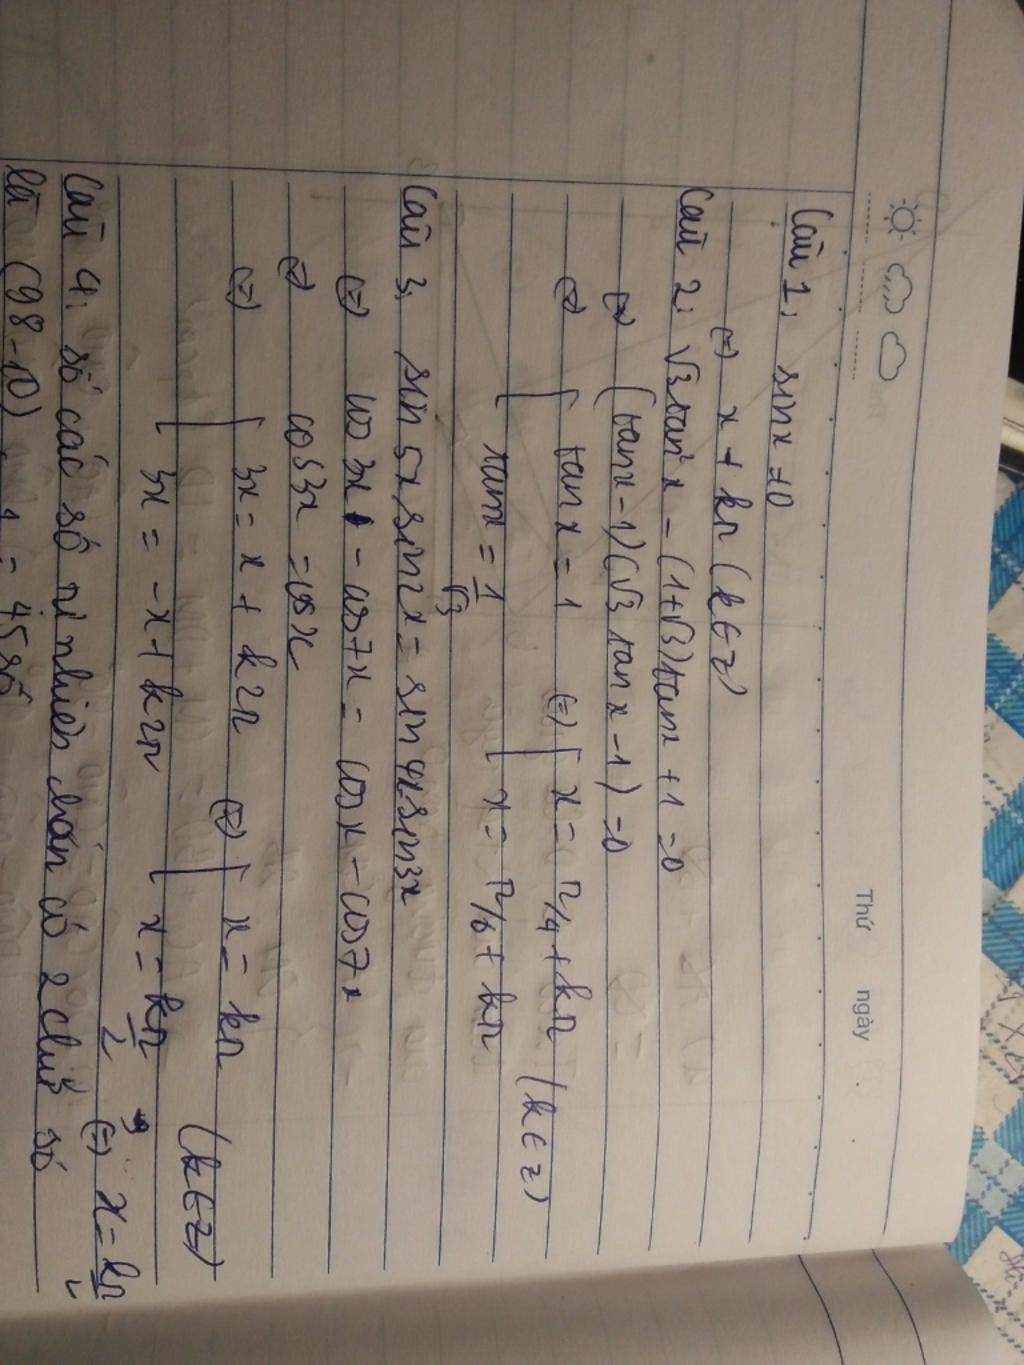 Thứ ngày
Câu 1, sinx=0
(=) x + kπ (k∈z)
Câu 2; √3tan²x - (1+√3)tanx + 1 =0
(=) (tanx-1)(√3 tanx-1)=0
(=) [ tanx=1 (=) [ x= π/4+kπ (k∈z)
tanx = 1/√3 x= π/6+kπ
Câu 3, sin5xsin2x= sin4xsin3x
(=) cos3x - cos7x = cosx - cos7x
(=) cos3x = cosx
(=) [ 3x = x + k2π (=) [ x = kπ (k∈z)
3x = -x + k2π x = kπ/2 (=) x= kπ/2
Câu 4, số các số tự nhiên chẵn có 2 chữ số
là (98-10)
= 45 số